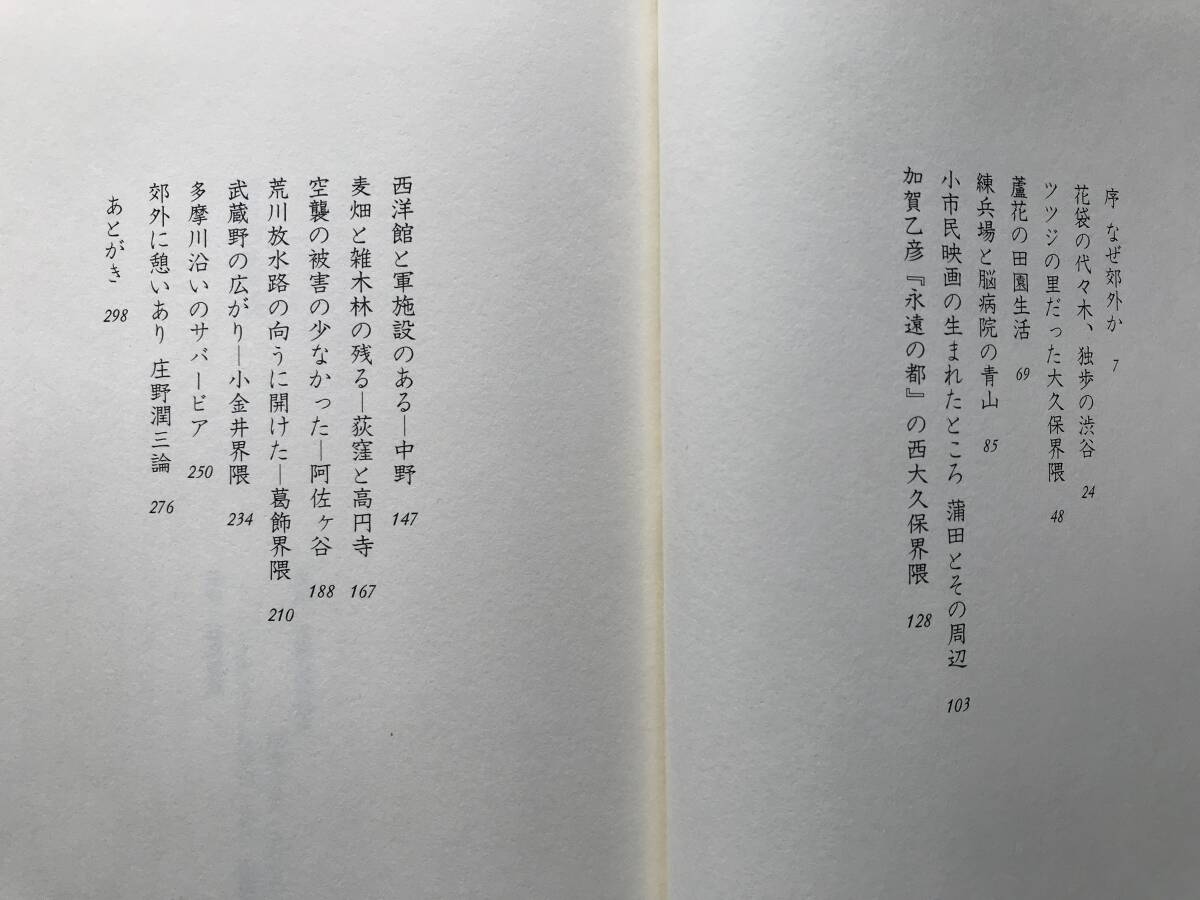 序 なぜ郊外か 7
花袋の代々木、独歩の渋谷 24
ツツジの里だった大久保界隈 48
蘆花の田園生活 69
練兵場と脳病院の青山 85
小市民映画の生まれたところ 蒲田とその周辺 103
加賀乙彦『永遠の都』の西大久保界隈 128
西洋館と軍施設のある―中野 147
麦畑と雑木林の残る―荻窪と高円寺 167
空襲の被害の少なかった―阿佐ヶ谷 188
荒川放水路の向うに開けた―葛飾界隈 210
武蔵野の広がり―小金井界隈 234
多摩川沿いのサバービア 250
郊外に憩いあり 庄野潤三論 276
あとがき 298